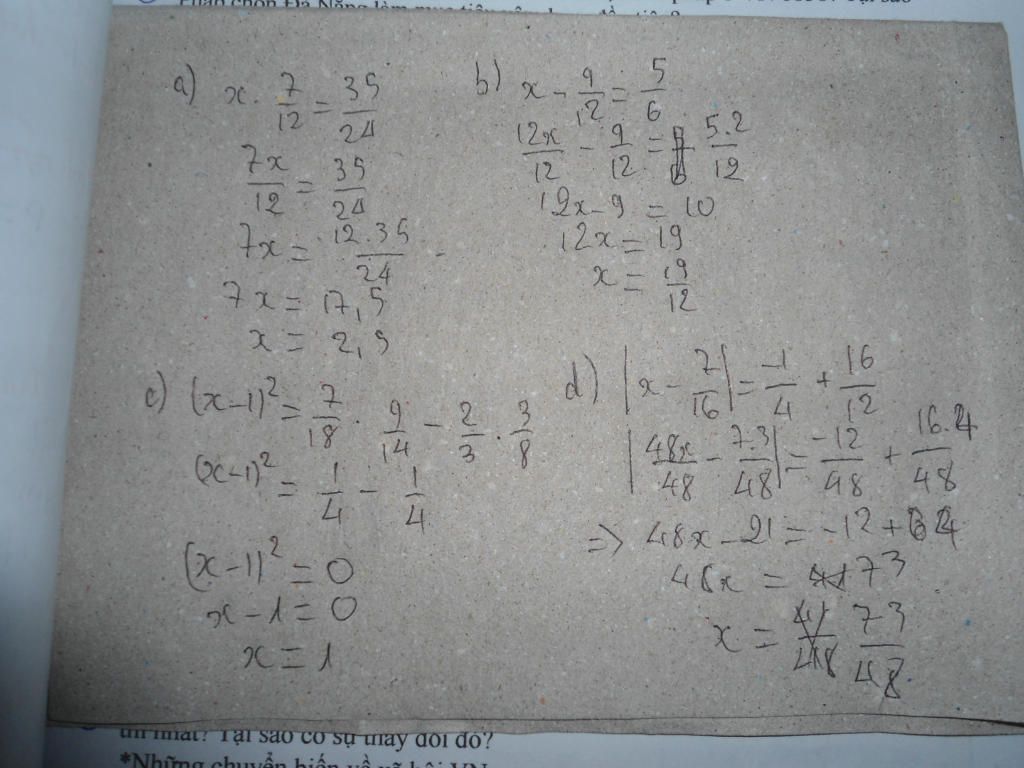 a) x . 7/12 = 35/24
7x/12 = 35/24
7x = 12.35/24
7x = 17,5
x = 2,5
b) x - 9/12 = 5/6
12x/12 - 9/12 = 5.2/12
12x - 9 = 10
12x = 19
x = 19/12
c) (x-1)² = 7/18 . 9/14 - 2/3 . 3/8
(x-1)² = 1/4 - 1/4
(x-1)² = 0
x - 1 = 0
x = 1
d) |x - 7/16| = -1/4 + 16/12
|48x/48 - 7.3/48| = -12/48 + 16.4/48
=> 48x - 21 = -12 + 64
48x = 73
x = 73/48
thứ nhất? Tại sao có sự thay đổi đó?
*Những chuyển biến về xã hội VN